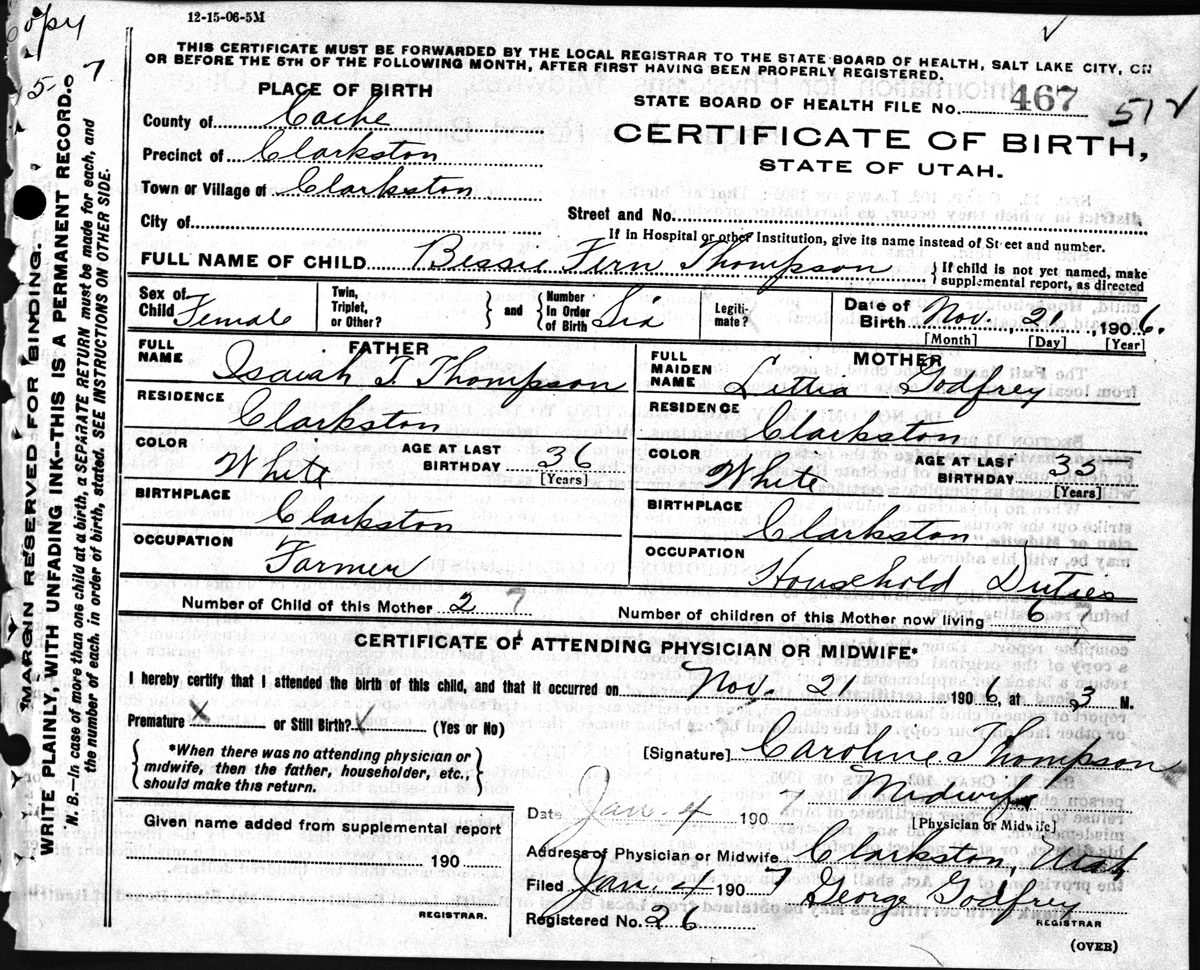 Copy
12-15-06-5M
THIS CERTIFICATE MUST BE FORWARDED BY THE LOCAL REGISTRAR TO THE STATE BOARD OF HEALTH, SALT LAKE CITY, ON
OR BEFORE THE 5TH OF THE FOLLOWING MONTH, AFTER FIRST HAVING BEEN PROPERLY REGISTERED.
PLACE OF BIRTH
STATE BOARD OF HEALTH FILE No. 467 512
County of Cache
CERTIFICATE OF BIRTH,
Precinct of Clarkston
STATE OF UTAH.
Town or Village of Clarkston
City of
Street and No.
If in Hospital or other Institution, give its name instead of Street and number.
FULL NAME OF CHILD Bessie Fern Thompson { If child is not yet named, make
supplemental report, as directed
Sex of Child Female
Twin, Triplet, or Other? } and { Number In Order of Birth Six
Legitimate?
Date of Birth Nov. 2, 1906.
[Month] [Day] [Year]
FATHER
FULL NAME Isaiah T. Thompson
MOTHER
FULL MAIDEN NAME Lettia Godfrey
RESIDENCE Clarkston
RESIDENCE Clarkston
COLOR White AGE AT LAST BIRTHDAY 36 [Years]
COLOR White AGE AT LAST BIRTHDAY 33 [Years]
BIRTHPLACE Clarkston
BIRTHPLACE Clarkston
OCCUPATION Farmer
OCCUPATION Household Duties
Number of Child of this Mother 2 7
Number of children of this Mother now living 6 7
CERTIFICATE OF ATTENDING PHYSICIAN OR MIDWIFE*
I hereby certify that I attended the birth of this child, and that it occurred on Nov. 2 1906, at 3 M.
Premature X or Still Birth? X (Yes or No)
{ *When there was no attending physician or
midwife, then the father, householder, etc.,
should make this return. }
[Signature] Caroline Thompson
Midwife
[Physician or Midwife]
Date Jan. 4 1907
Given name added from supplemental report
190
REGISTRAR.
Address of Physician or Midwife Clarkston, Utah
Filed Jan. 4 1907 George Godfrey
REGISTRAR
Registered No. 26
(OVER)
MARGIN RESERVED FOR BINDING.
WRITE PLAINLY, WITH UNFADING INK--THIS IS A PERMANENT RECORD.
N. B.--In case of more than one child at a birth, a SEPARATE RETURN must be made for each, and
the number of each, in order of birth, stated. SEE INSTRUCTIONS ON OTHER SIDE.